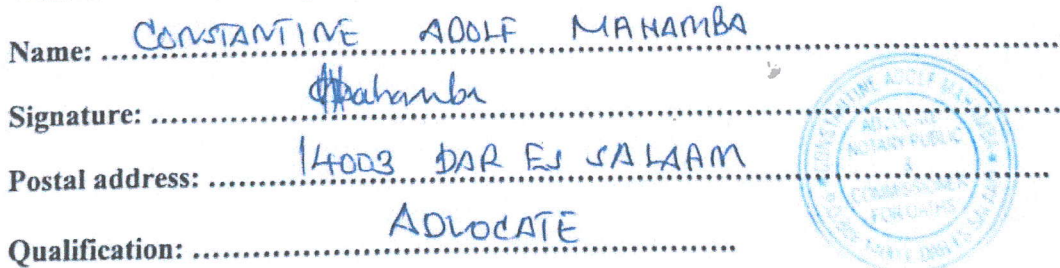 Name: CONSTANTINE ADOLF MAHAMBA
Signature: Mahamba
Postal address: 14003 DAR ES SALAAM
Qualification: ADVOCATE
CONSTANTINE ADOLF MAHAMBA
ADVOCATE
NOTARY PUBLIC
&
COMMISSIONER
FOR OATHS